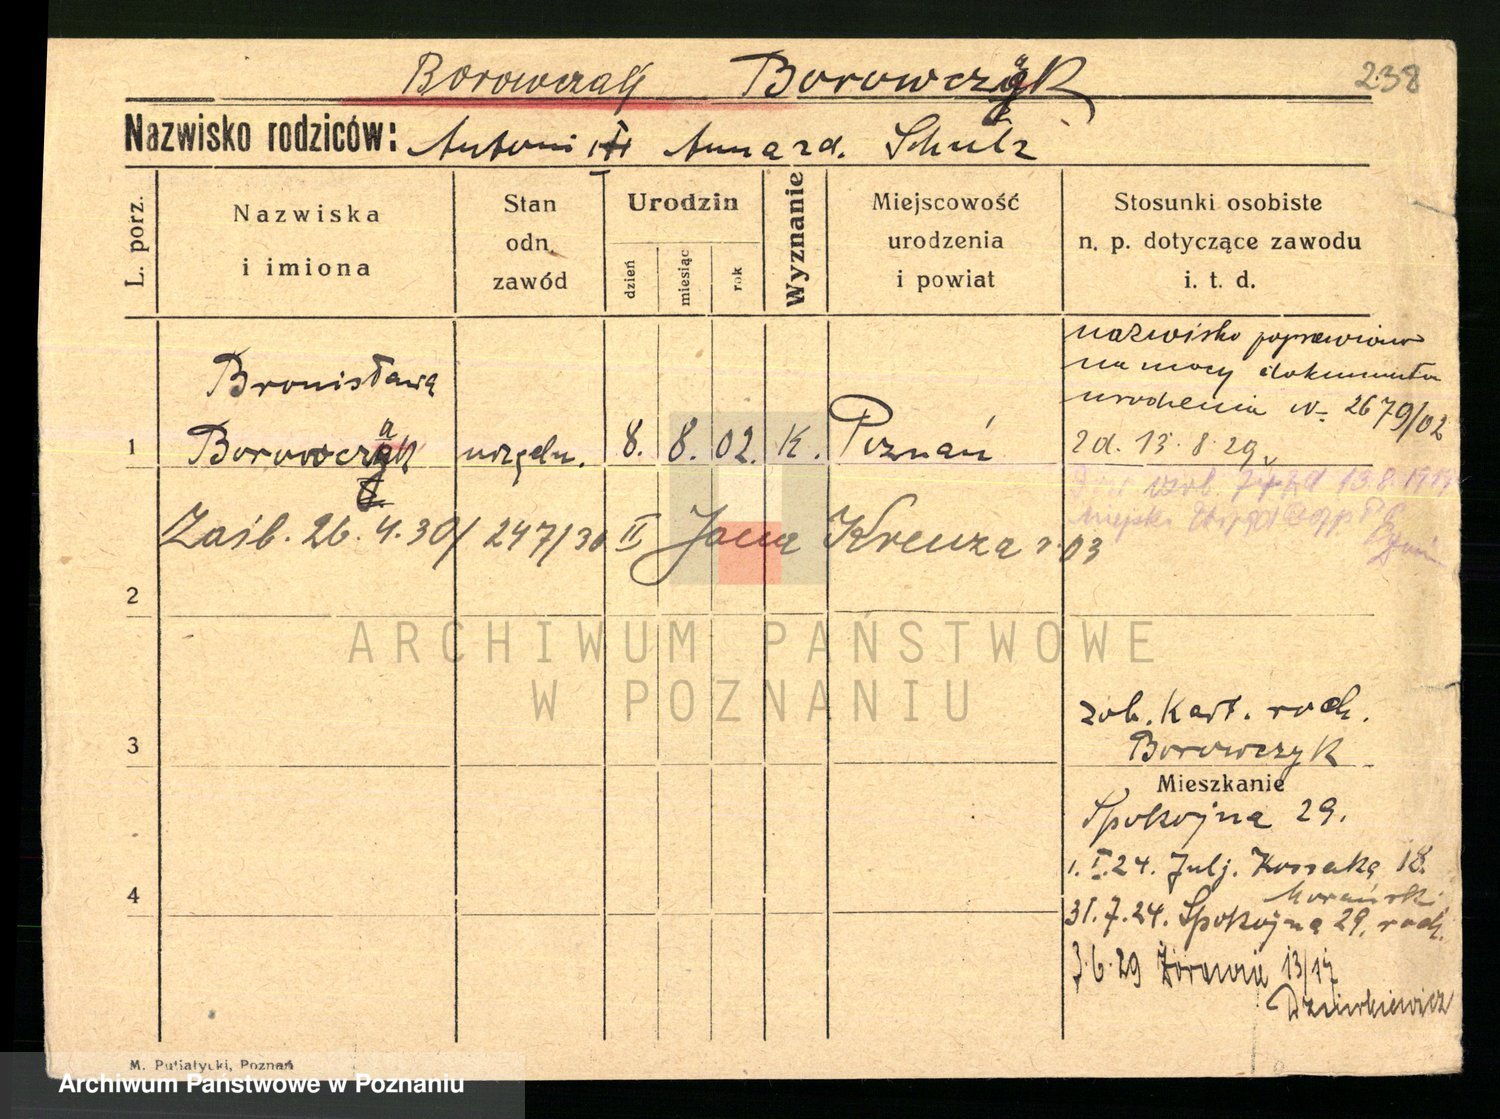 Borowczak Borowczak 238
Nazwisko rodziców: Antoni i Anna zd. Schulz
L. porz.
Nazwiska
i imiona
Stan
odn.
zawód
Urodzin
dzień
miesiąc
rok
Wyznanie
Miejscowość
urodzenia
i powiat
Stosunki osobiste
n. p. dotyczące zawodu
i. t. d.
nazwisko poprawiono
na mocy dokumentu
urodzenia N- 2679/02
zd. 13.8.29
Bronisława
1 Borowczak 8. 8. 02. K. Poznań
13.8.19
Zaśl. 26.4.30/ 247/30 II Jana Kreuza r. 03
2
zob. Kart. rodz.
3 Borowczyk
Mieszkanie
Spokojna 29.
1.I.24. Julj. Kossaka 18.
4
31.7.24. Spokojna 29, rodz.
3.6.29 Żórawia 13/17
M. Putiatycki, Poznań
ARCHIWUM PAŃSTWOWE
W POZNANIU
Archiwum Państwowe w Poznaniu